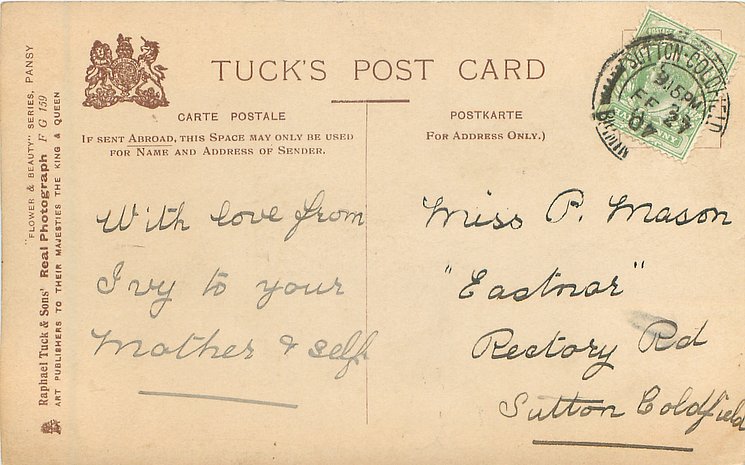 TUCK'S POST CARD
CARTE POSTALE
IF SENT ABROAD, THIS SPACE MAY ONLY BE USED
FOR NAME AND ADDRESS OF SENDER.
POSTKARTE
FOR ADDRESS ONLY.)
"FLOWER & BEAUTY" SERIES, PANSY
Raphael Tuck & Sons' Real Photograph F G 159
ART PUBLISHERS TO THEIR MAJESTIES THE KING & QUEEN
SUTTON-COLDFIELD
FE 27
07
With love from
Ivy to your
Mother & self
Miss P. Mason
"Eastnor"
Rectory Rd
Sutton Coldfield